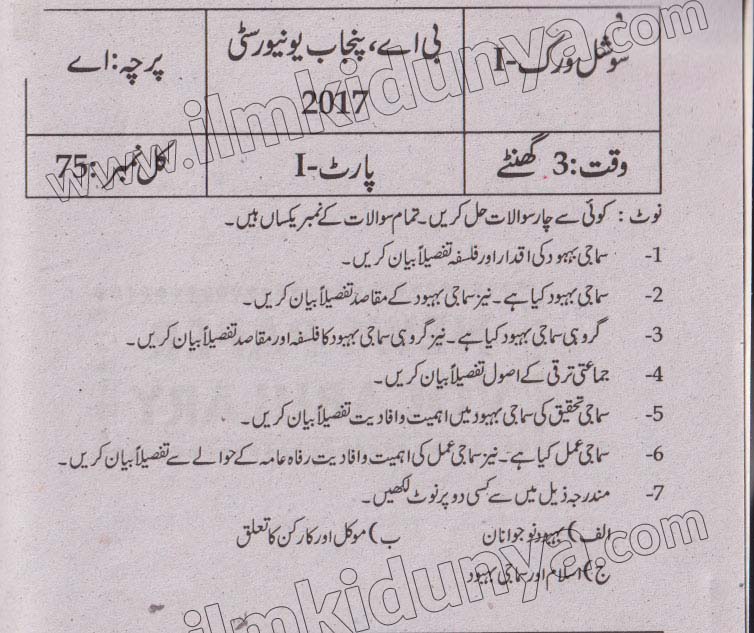 سوشل ورک-I
بی اے، پنجاب یونیورسٹی 2017
پرچہ: اے
وقت: 3 گھنٹے
پارٹ-I
کل نمبر: 75
نوٹ: کوئی سے چار سوالات حل کریں۔ تمام سوالات کے نمبر یکساں ہیں۔
1- سماجی بہبود کی اقدار اور فلسفہ تفصیلاً بیان کریں۔
2- سماجی بہبود کیا ہے۔ نیز سماجی بہبود کے مقاصد تفصیلاً بیان کریں۔
3- گروہی سماجی بہبود کیا ہے۔ نیز گروہی سماجی بہبود کا فلسفہ اور مقاصد تفصیلاً بیان کریں۔
4- جماعتی ترقی کے اصول تفصیلاً بیان کریں۔
5- سماجی تحقیق کی سماجی بہبود میں اہمیت و افادیت تفصیلاً بیان کریں۔
6- سماجی عمل کیا ہے۔ نیز سماجی عمل کی اہمیت و افادیت رفاہ عامہ کے حوالے سے تفصیلاً بیان کریں۔
7- مندرجہ ذیل میں سے کسی دو پر نوٹ لکھیں۔
الف) بہبود نوجوانان ب) موکل اور کارکن کا تعلق
ج) اسلام اور سماجی بہبود
www.ilmkidunya.com
ilmkidunya.com